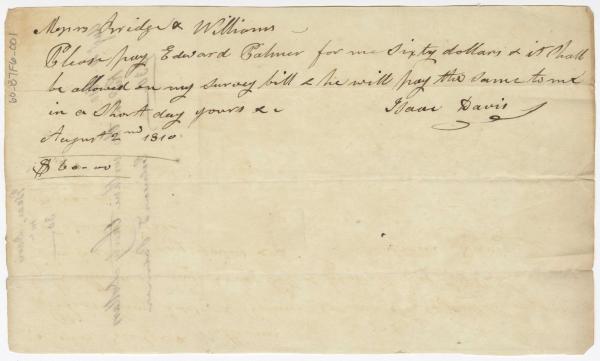 Messrs Bridge & Williams
Please pay Edward Palmer for me Sixty dollars & it shall
be allowed on my survey bill & he will pay the same to me
in a Short day yours &c
Isaac Davis
August 2nd 1810
$ 60-00
60-87F6-001